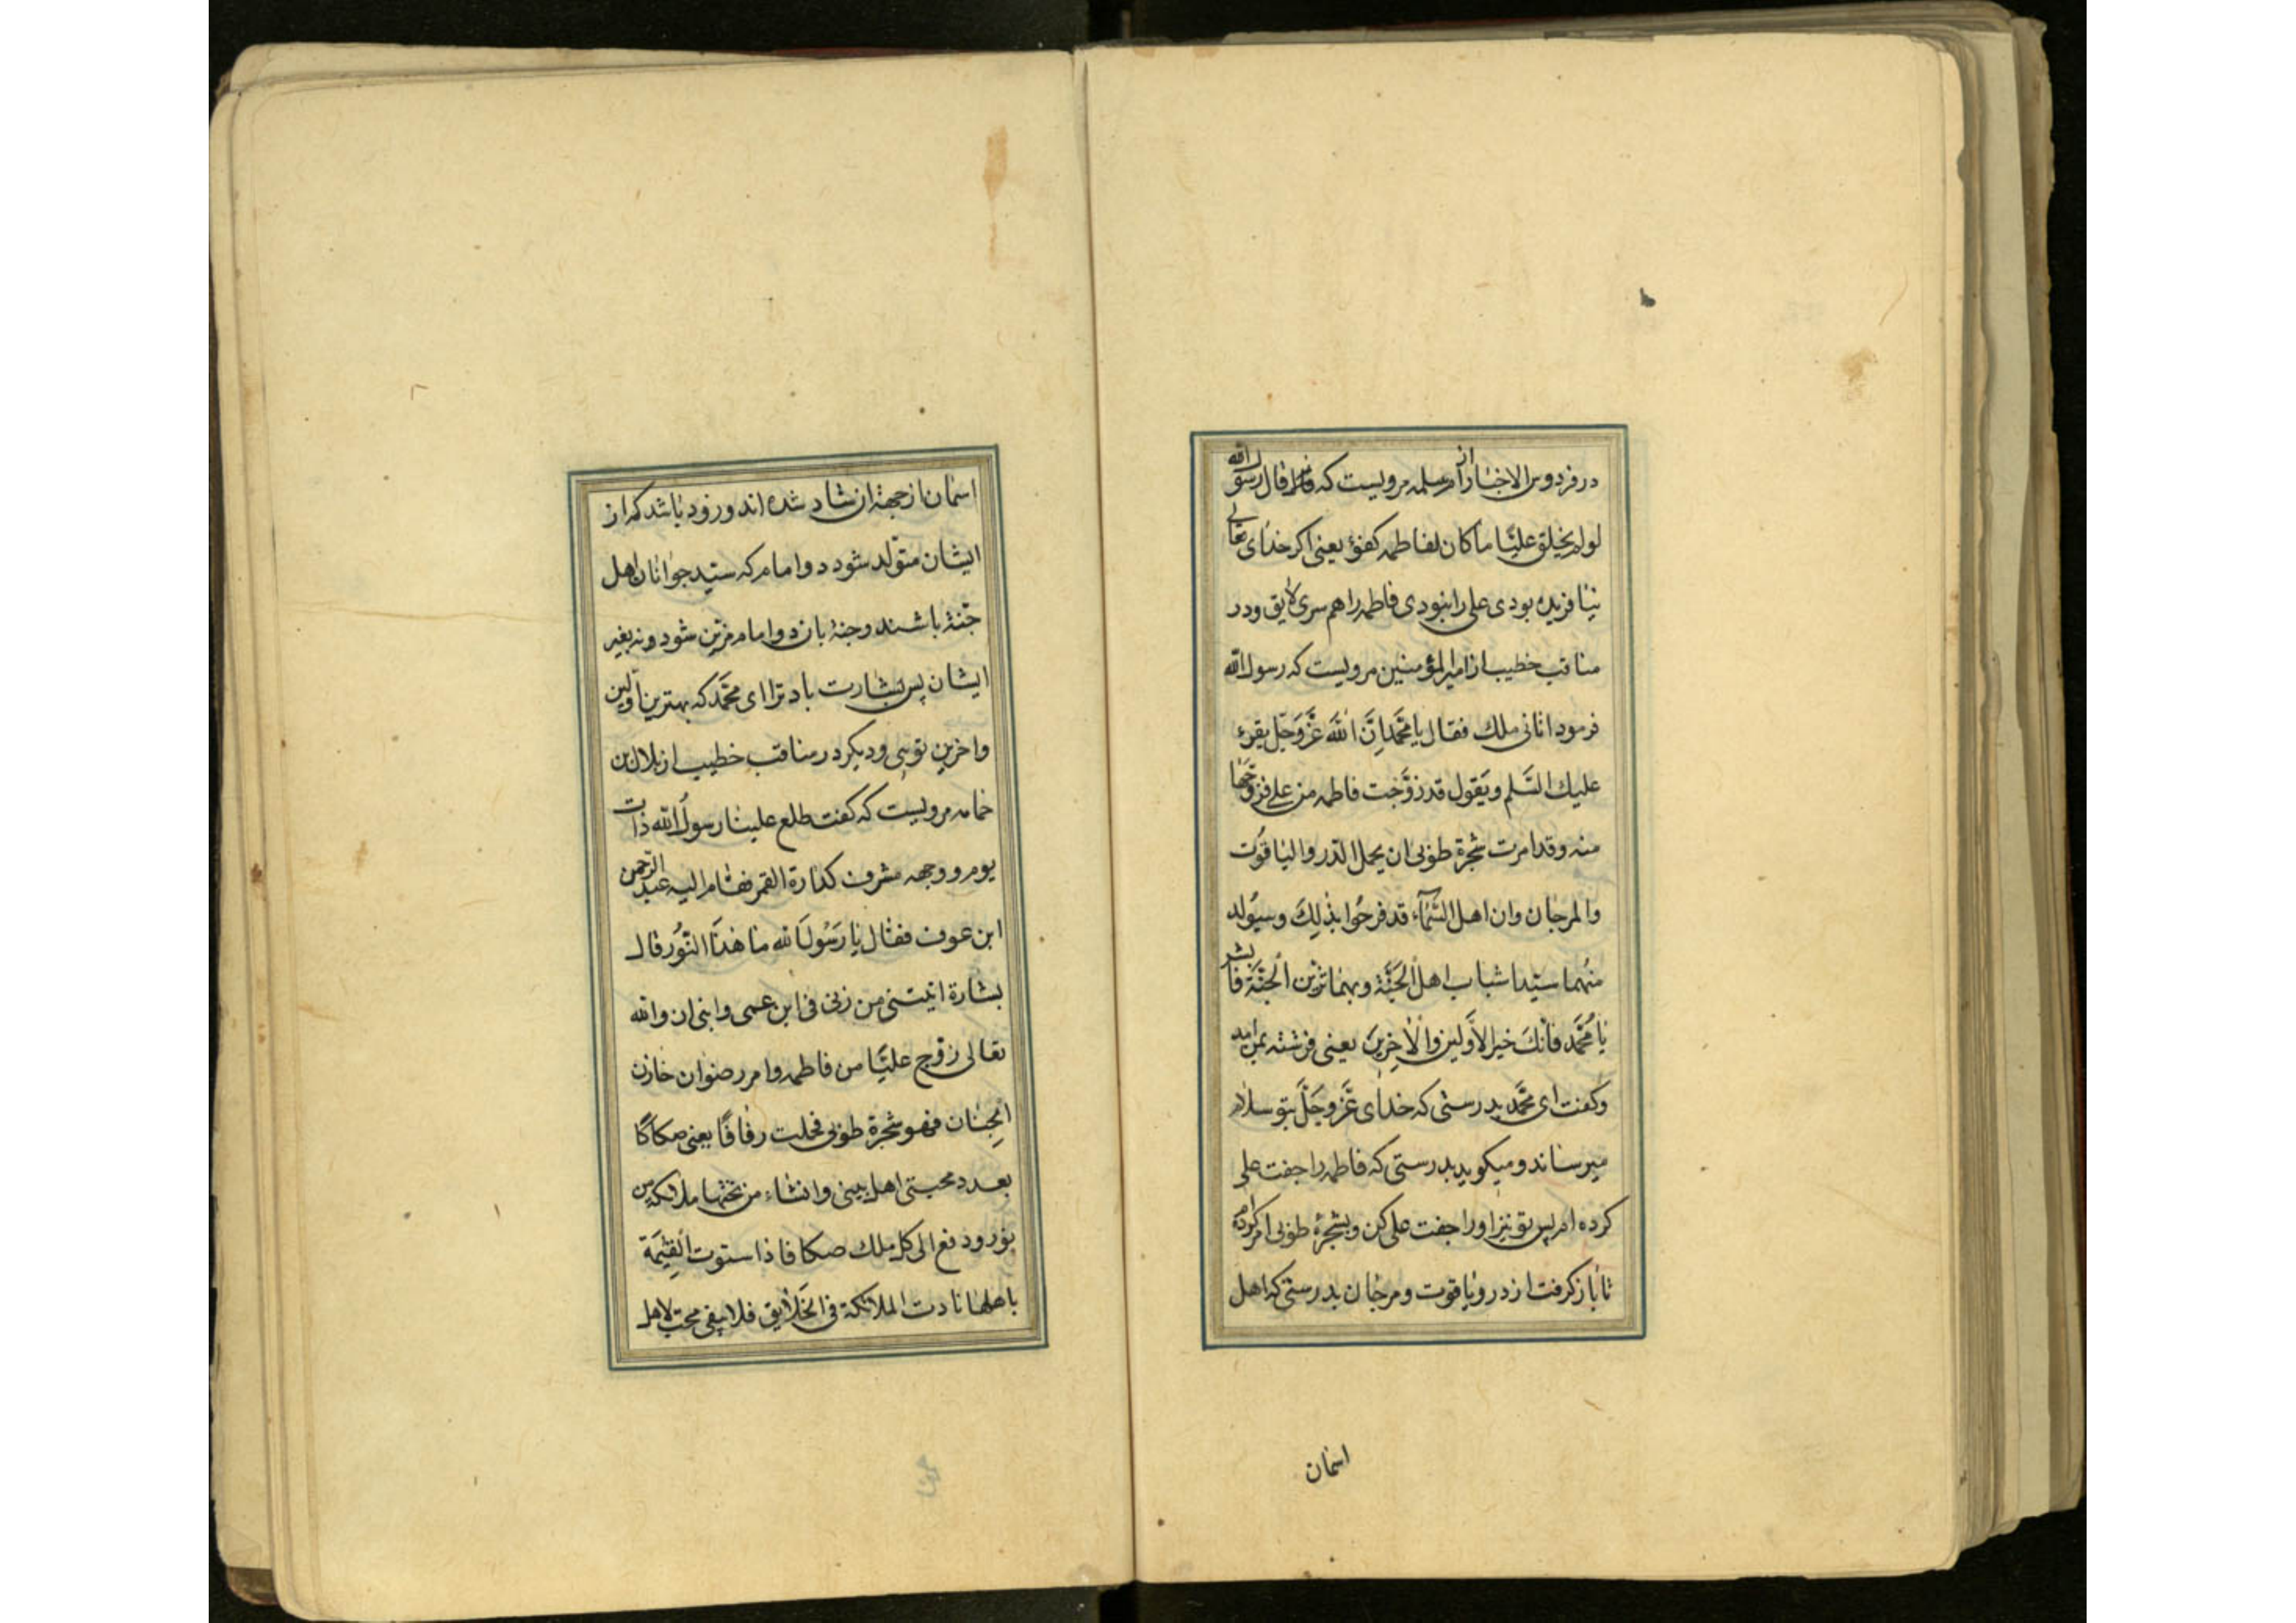 در فردوس الاخبار از ام سلمه مرویست که قال رسول الله
لولم یخلق علیًا ما کان لفاطمه کفوٌ یعنی اکر خدای تعالی
نیافریده بودی علی را نبودی فاطمه را هم سری لایق و در
مناقب خطیب از امیرالمؤمنین مرویست که رسول الله
فرمود اتانی ملک فقال یا محمّد اِنَّ اللهَ عَزَّوَجَلّ یقرء
علیك السَّلم و یَقول قد زوَّجت فاطمه من علی فزوّجها
منه و قد امرت شجرة طوبی ان یحمل الدّر والیاقوت
والمرجان وان اهل السَّمآء قد فرحُوا بذلِكَ وسیُولد
منهُما سیّدا شباب اهل الجَنَّة وبهما تزیّن الجنَّة فابشر
یا مُحمَّد فانّكَ خیر الاَوّلین والاٰخِرینَ یعنی فرشته بمن امد
وکفت ای محمَّد بدرستی که خدای عَزَّوجَلَّ بتو سلام
میرساند و میکوید بدرستی که فاطمه را جفت علی
کرده ام پس تو نیز اورا جفت علی کن و بشجرۀ طوبی امر کرده‌ام
تا باز کرفت از در و یاقوت و مرجان بدرستی که اهل
اسمان
اسمان از جهة ان شاد شده اند و زود باشد که از
ایشان متوّلد شود دو امام که سیّد جوانان اهل
جنّة باشند و جنة بان دو امام مزیّن شود و نه بغیر
ایشان پس بشارت باد ترا ای محمَّد که بهترین اوّلین
واخرین توئی و دیکر در مناقب خطیب از بلال بن
حمامه مرویست که کفت طلع علینا رسولُ الله ذات
یوم ووجهه مشرف کدارة القمر فقام الیه عبد الرّحمن
ابن عوف فقال یا رَسُولَ الله ما هٰذَا النّوُر قال
بشارة اتیتنی من ربّی فی ابن عمی وابنی ان والله
تعالی زوّج علیًّا من فاطمه وامر رضوان خازن
الجِنان فهو شجرة طوبی فحملت رفاقًا یعنی صکاکًا
بعدد محبتی اهل بیتی وانشاء من تحتها ملائکه من
نور و دفع الی کل ملك صکا فاذا ستوت القِیٰمَة
باهلها نادت الملائکة فی الخَلایق فلا یبقی محب لاهل